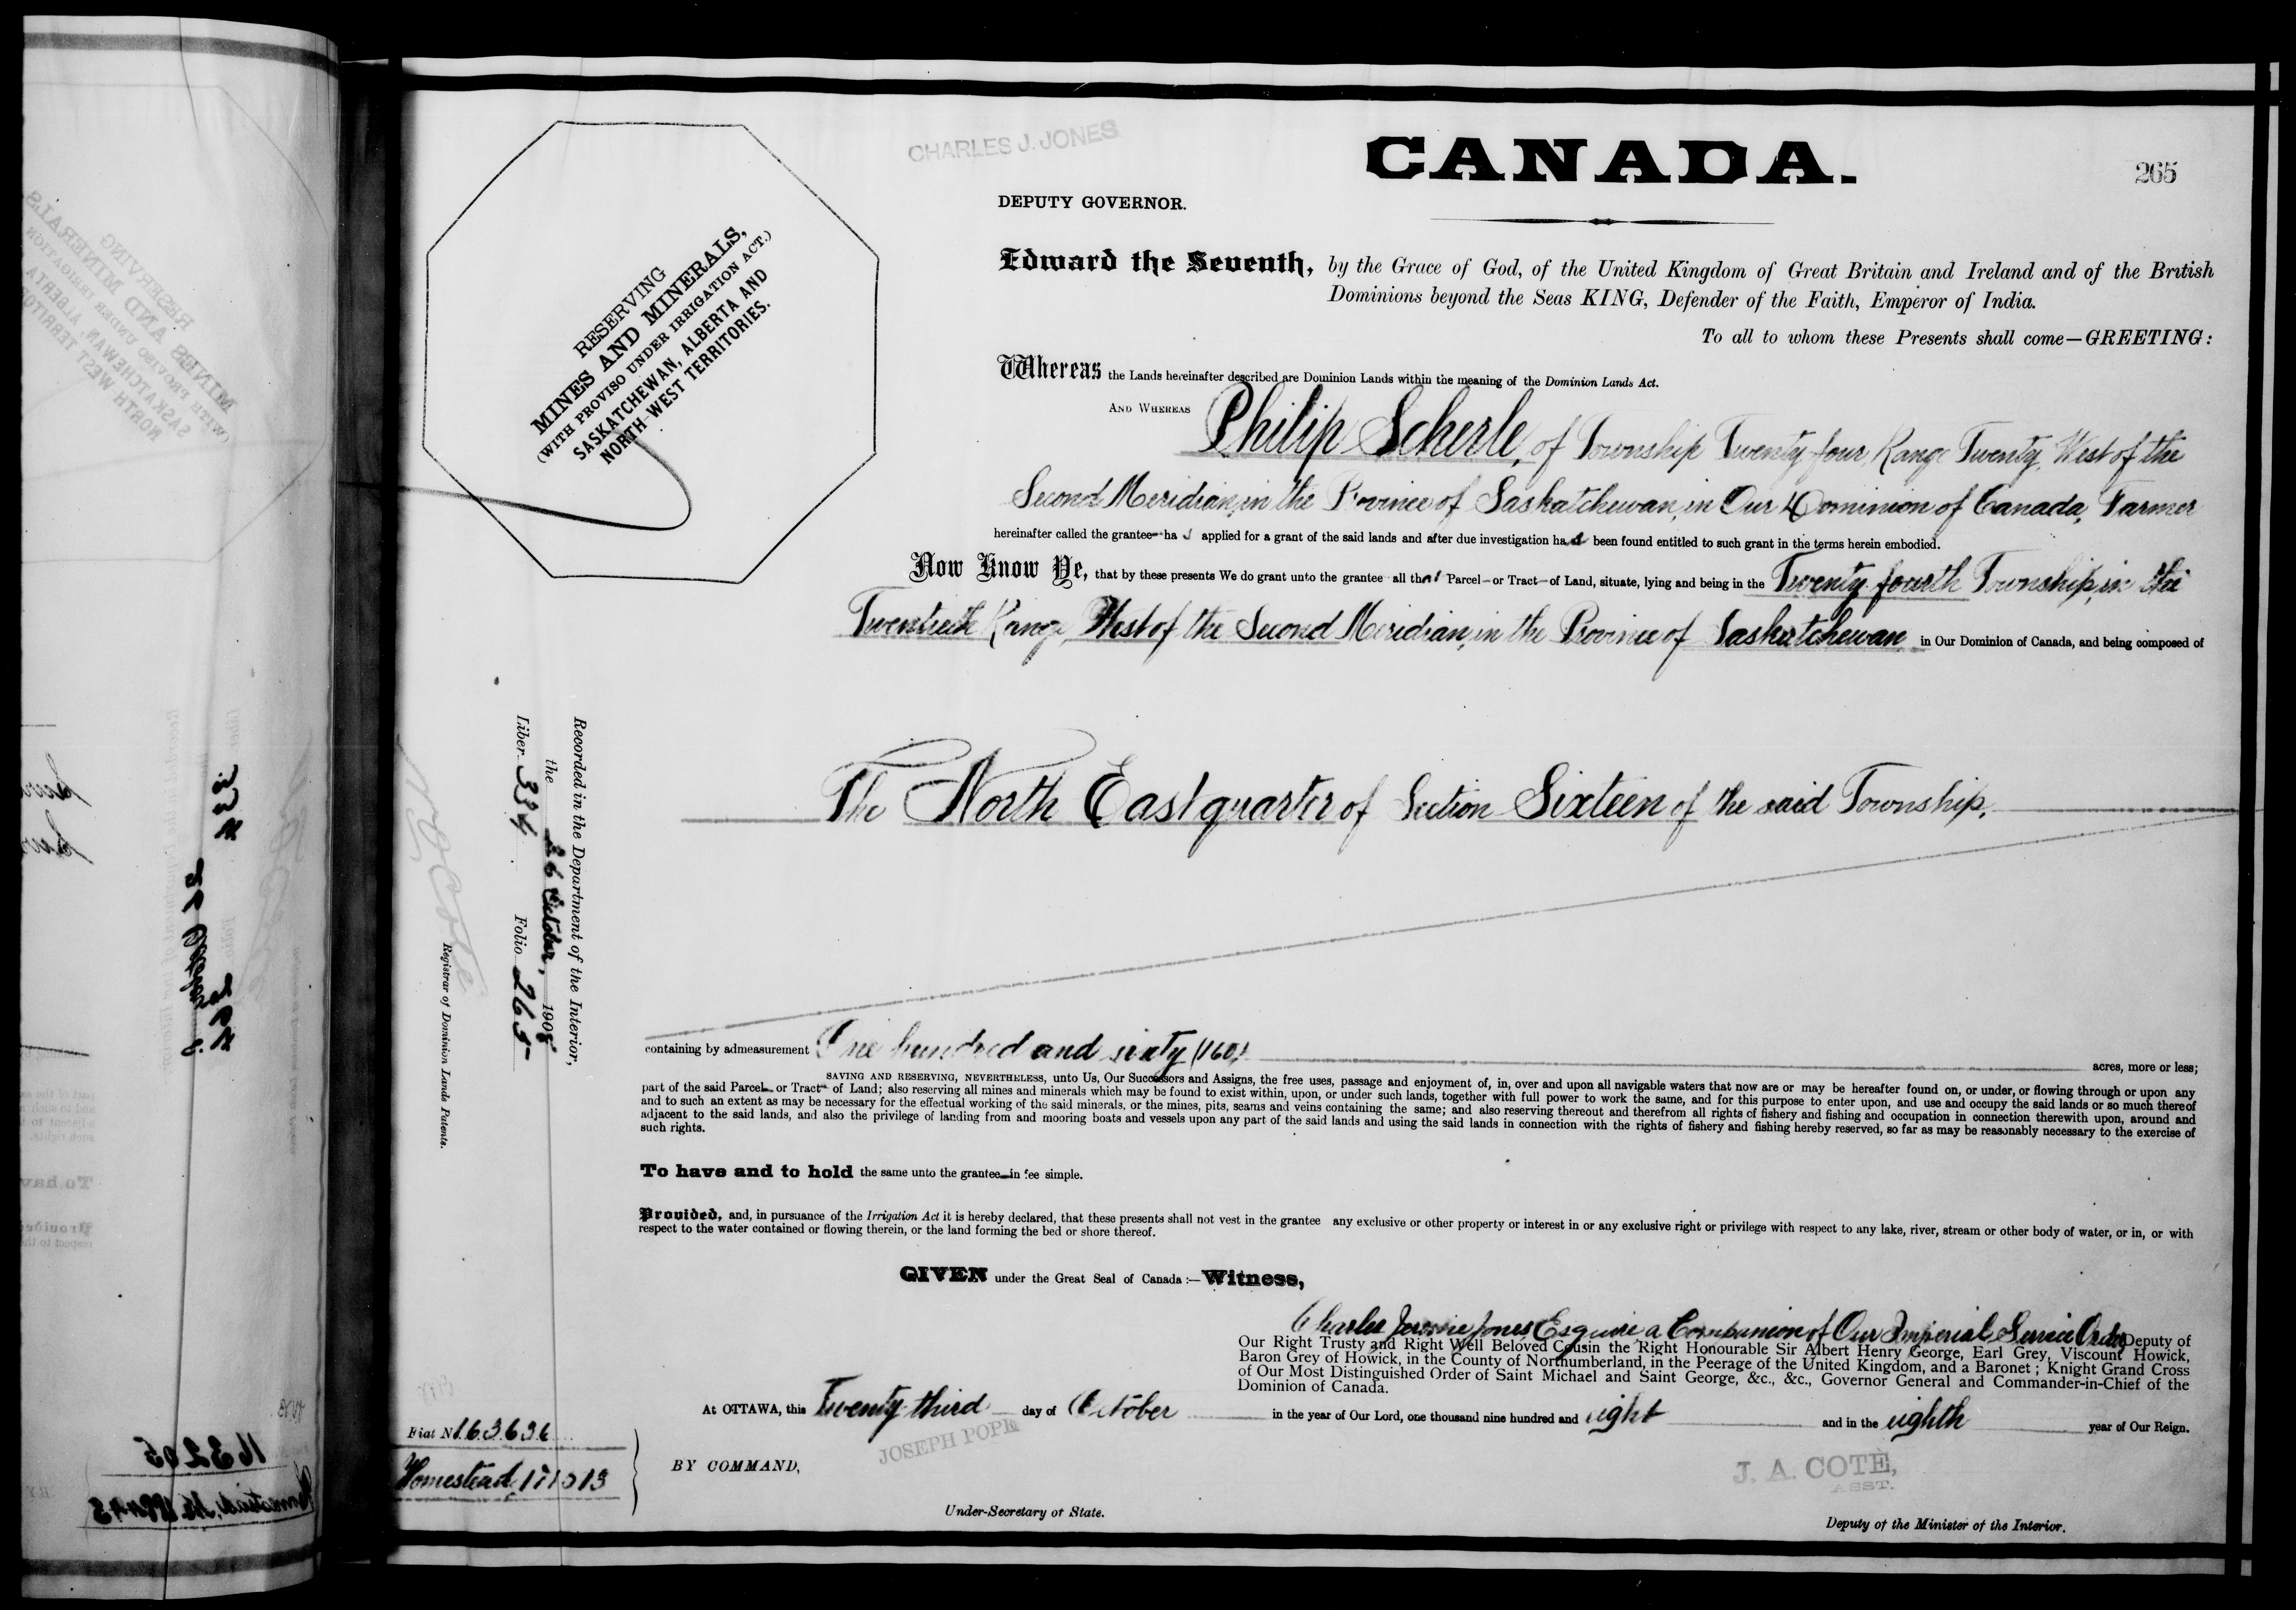 CHARLES J. JONES
CANADA.
265
DEPUTY GOVERNOR.
Edward the Seventh, by the Grace of God, of the United Kingdom of Great Britain and Ireland and of the British
Dominions beyond the Seas KING, Defender of the Faith, Emperor of India.
To all to whom these Presents shall come—GREETING:
RESERVING
MINES AND MINERALS,
(WITH PROVISO UNDER IRRIGATION ACT.)
SASKATCHEWAN, ALBERTA AND
NORTH-WEST TERRITORIES.
Whereas the Lands hereinafter described are Dominion Lands within the meaning of the Dominion Lands Act.
AND WHEREAS Philip Scherle, of Township Twenty four, Range Twenty, West of the
Second Meridian, in the Province of Saskatchewan, in Our Dominion of Canada, Farmer
hereinafter called the grantee has applied for a grant of the said lands and after due investigation has been found entitled to such grant in the terms herein embodied.
Now Know Ye, that by these presents We do grant unto the grantee all that Parcel or Tract of Land, situate, lying and being in the Twenty fourth Township, in the
Twentieth Range, West of the Second Meridian, in the Province of Saskatchewan in Our Dominion of Canada, and being composed of
The North East quarter of Section Sixteen of the said Township.
Recorded in the Department of the Interior,
the 26 October, 1908
Liber 334 Folio 265
Registrar of Dominion Lands Patents.
containing by admeasurement One hundred and sixty (160) acres, more or less;
SAVING AND RESERVING, NEVERTHELESS, unto Us, Our Successors and Assigns, the free uses, passage and enjoyment of, in, over and upon all navigable waters that now are or may be hereafter found on, or under, or flowing through or upon any
part of the said Parcel or Tract of Land; also reserving all mines and minerals which may be found to exist within, upon, or under such lands, together with full power to work the same, and for this purpose to enter upon, and use and occupy the said lands or so much thereof
and to such an extent as may be necessary for the effectual working of the said minerals, or the mines, pits, seams and veins containing the same; and also reserving thereout and therefrom all rights of fishery and fishing and occupation in connection therewith upon, around and
adjacent to the said lands, and also the privilege of landing from and mooring boats and vessels upon any part of the said lands and using the said lands in connection with the rights of fishery and fishing hereby reserved, so far as may be reasonably necessary to the exercise of
such rights.
To have and to hold the same unto the grantee in fee simple.
Provided, and, in pursuance of the Irrigation Act it is hereby declared, that these presents shall not vest in the grantee any exclusive or other property or interest in or any exclusive right or privilege with respect to any lake, river, stream or other body of water, or in, or with
respect to the water contained or flowing therein, or the land forming the bed or shore thereof.
GIVEN under the Great Seal of Canada:—Witness,
Charles Jerome Jones, Esquire, a Companion of Our Imperial Service Order, Deputy of
Our Right Trusty and Right Well Beloved Cousin the Right Honourable Sir Albert Henry George, Earl Grey, Viscount Howick,
Baron Grey of Howick, in the County of Northumberland, in the Peerage of the United Kingdom, and a Baronet; Knight Grand Cross
of Our Most Distinguished Order of Saint Michael and Saint George, &c., &c., Governor General and Commander-in-Chief of the
Dominion of Canada.
At OTTAWA, this Twenty third day of October in the year of Our Lord, one thousand nine hundred and eight and in the eighth year of Our Reign.
Fiat No 163636
Homestead,
BY COMMAND,
JOSEPH POPE
Under-Secretary of State.
J. A. COTÉ,
ASST.
Deputy of the Minister of the Interior.